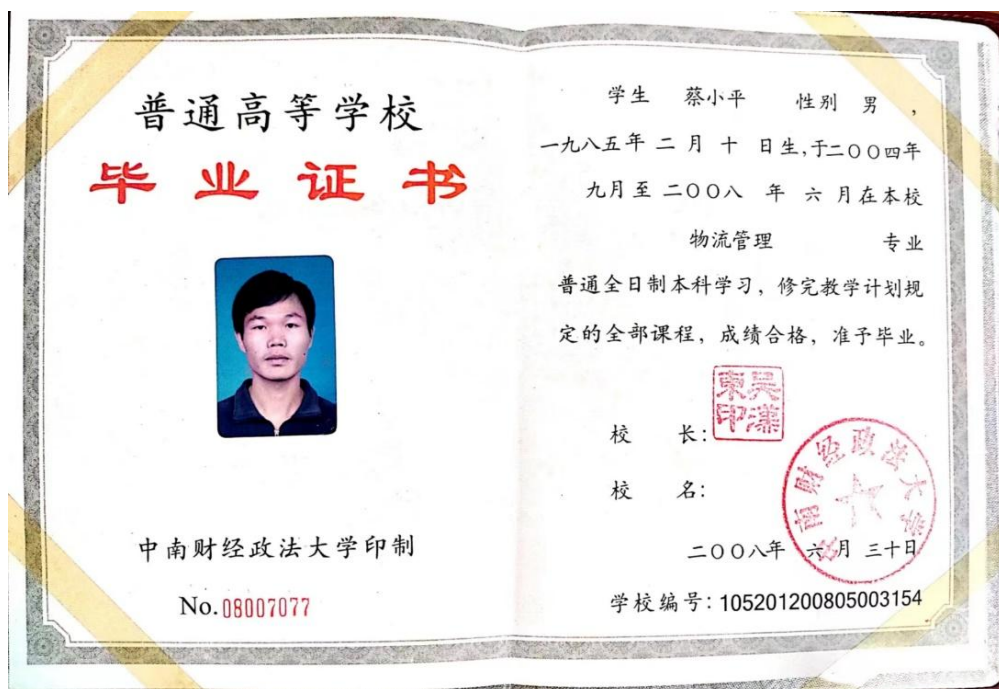 普通高等学校
毕业证书
中南财经政法大学印制
No.08007077
学生 蔡小平 性别 男，
一九八五年 二 月 十 日生，于二〇〇四年
九月至 二〇〇八 年 六 月在本校
物流管理 专业
普通全日制本科学习，修完教学计划规
定的全部课程，成绩合格，准予毕业。
校 长：
吴汉东印
校 名：
中南财经政法大学
二〇〇八年 六月 三十日
学校编号：105201200805003154